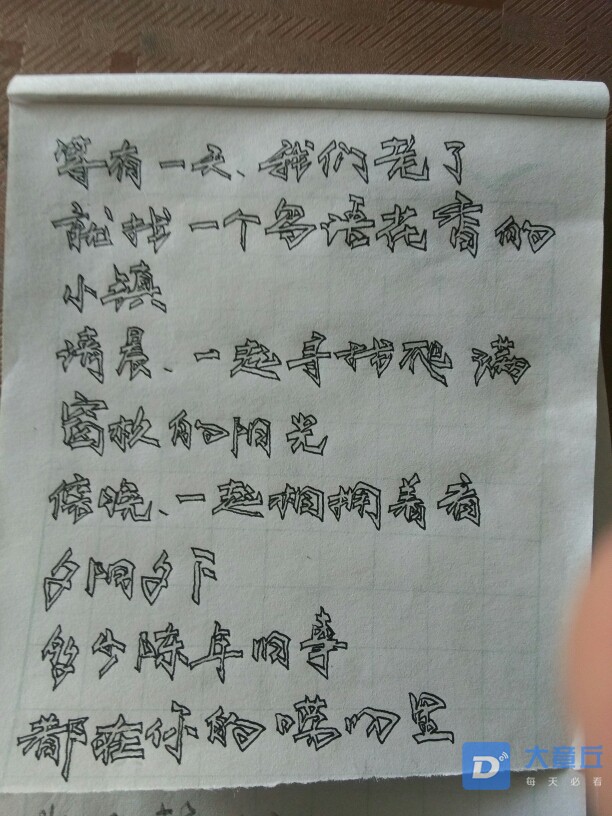 等有一天、我们老了
就找一个鸟语花香的
小镇
清晨、一起寻找爬满
窗的阳光
傍晚、一起相拥着看
夕阳夕下
多少陈年旧事
都在你的里
大章丘
每天必看